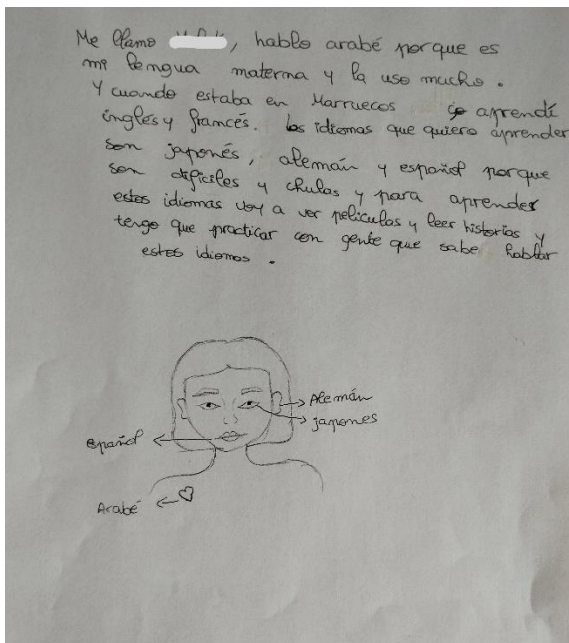 Me llamo , hablo arabé porque es
mi lengua materna y la uso mucho.
Y cuando estaba en Marruecos aprendí
inglés y francés. los idiomas que quiero aprender
son japonés, alemán y español porque
son dificiles y chulas y para aprender
estos idiomas voy a ver peliculas y leer historias y
tengo que practicar con gente que sabe hablar
estos idiomas.
Alemán
japones
español
Arabé